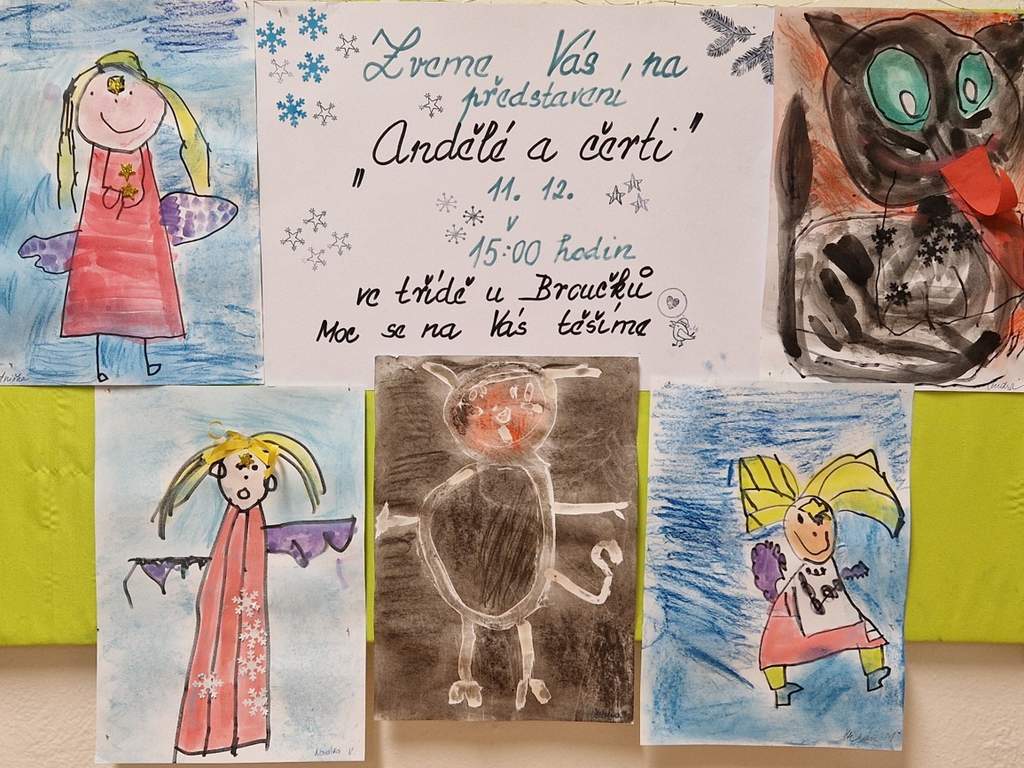 Zveme Vás na
představení
"Andělé a čerti"
11. 12.
v
15:00 hodin
ve třídě u Broučků
Moc se na Vás těšíme